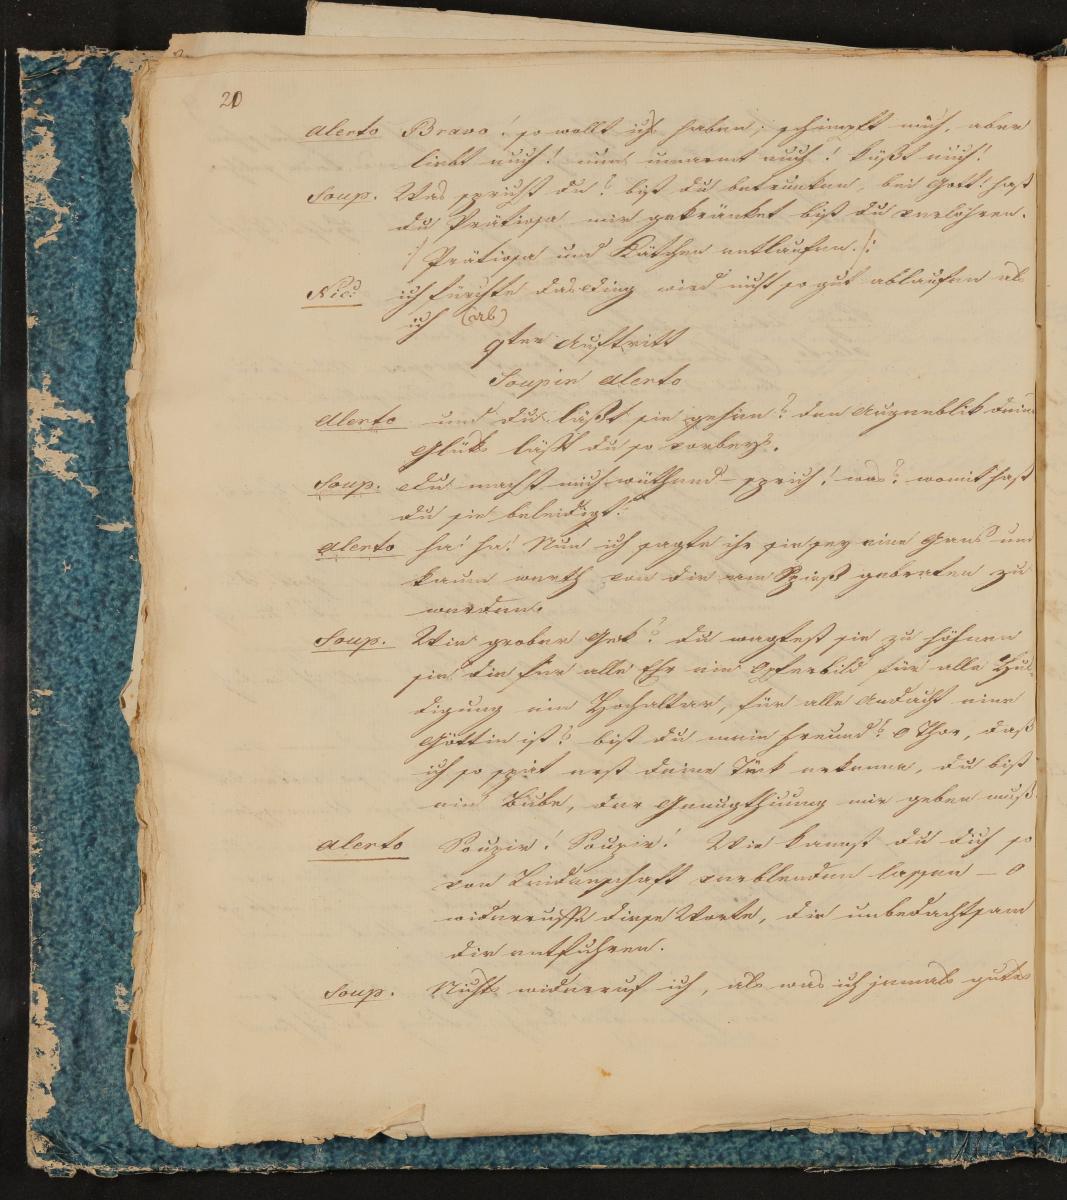 20
Alerto Bravo! so wollt ichs haben; schimpft mich, aber
liebt euch! nun umarmt euch! küßt euch!
Soup. Was sprichst du? bist du betrunken, bei Gott! hast
du Prätiosa mir gekränket bist du verlohren.
:/ Prätiosa und Käthgen entlaufen. /:
Nic: ich fürchte das Ding wird nicht so gut ablaufen als
ich (ab)
9ter Auftritt
Soupir Alerto
Alerto und du läßt sie gehen? den Augenblik deines
Glüks läßt du so vorbey.
Soup. Du machst mich wüthend – sprich! was? womit hast
du sie beleidigt?
Alerto ha! ha! Nun ich sagte ihr sie sey eine Gans und
kaum werth von dir am Spieß gebraten zu
werden.
Soup. Wie grober Gek? du wagtest sie zu höhnen
sie die für alle Ehr ein Opferbild für alle Hul-
digung ein Hochaltar, für alle Andacht eine
Göttin ist? bist du mein Freund? O Thor, daß
ich so spät erst deine Tük erkenne, du bist
ein Bube, der Genugthuung mir geben muß
Alerto Soupir! Soupir! Wie kannst du dich so
von Leidenschaft verblenden lassen – O
widerruffe diese Worte, die unbedachtsam
dir entfuhren.
Soup. Nichts widerruf ich, als was ich jemals gutes